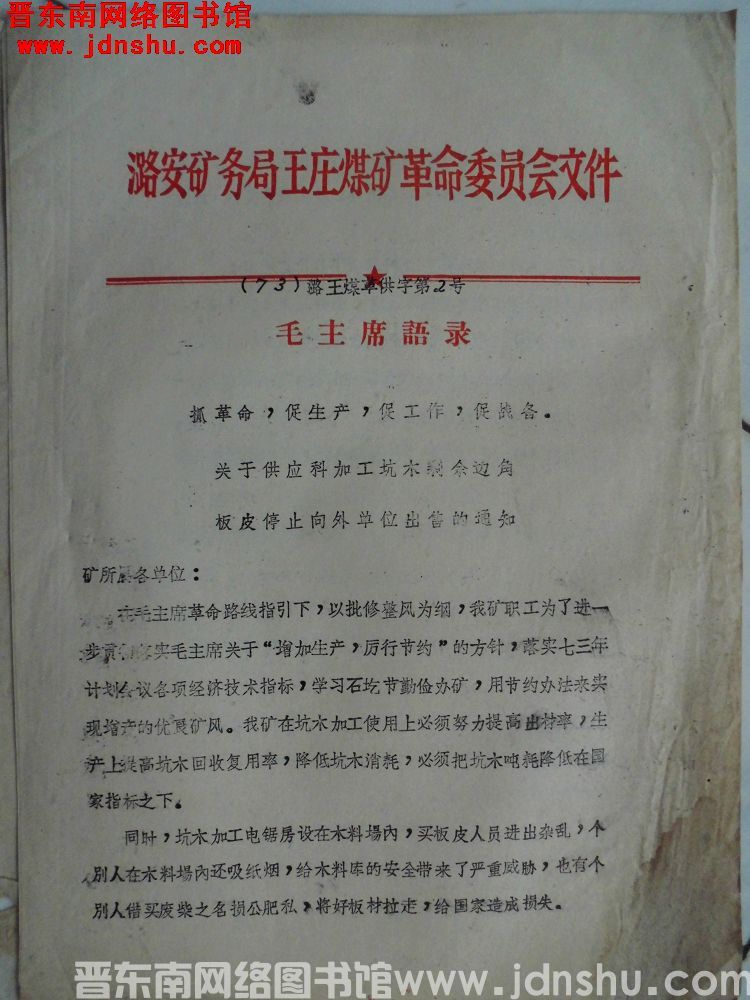 晋东南网络图书馆
www.jdnshu.com
潞安矿务局王庄煤矿革命委员会文件
(73)潞王煤革供字第2号
毛主席語录
抓革命,促生产,促工作,促战备。
关于供应科加工坑木剩余边角
板皮停止向外单位出售的通知
矿所属各单位:
在毛主席革命路线指引下,以批修整风为纲,我矿职工为了进一
步贯彻落实毛主席关于“增加生产,厉行节约”的方针,落实七三年
计划会议各项经济技术指标,学习石圪节勤俭办矿,用节约办法来实
现增产的优良矿风。我矿在坑木加工使用上必须努力提高出材率,生
产上提高坑木回收复用率,降低坑木消耗,必须把坑木吨耗降低在国
家指标之下。
同时,坑木加工电锯房设在木料場內,买板皮人员进出杂乱,个
別人在木料場內还吸纸烟,给木料库的安全带来了严重威胁,也有个
別人借买废柴之名损公肥私,将好板材拉走,给国家造成损失。
晋东南网络图书馆www.jdnshu.com